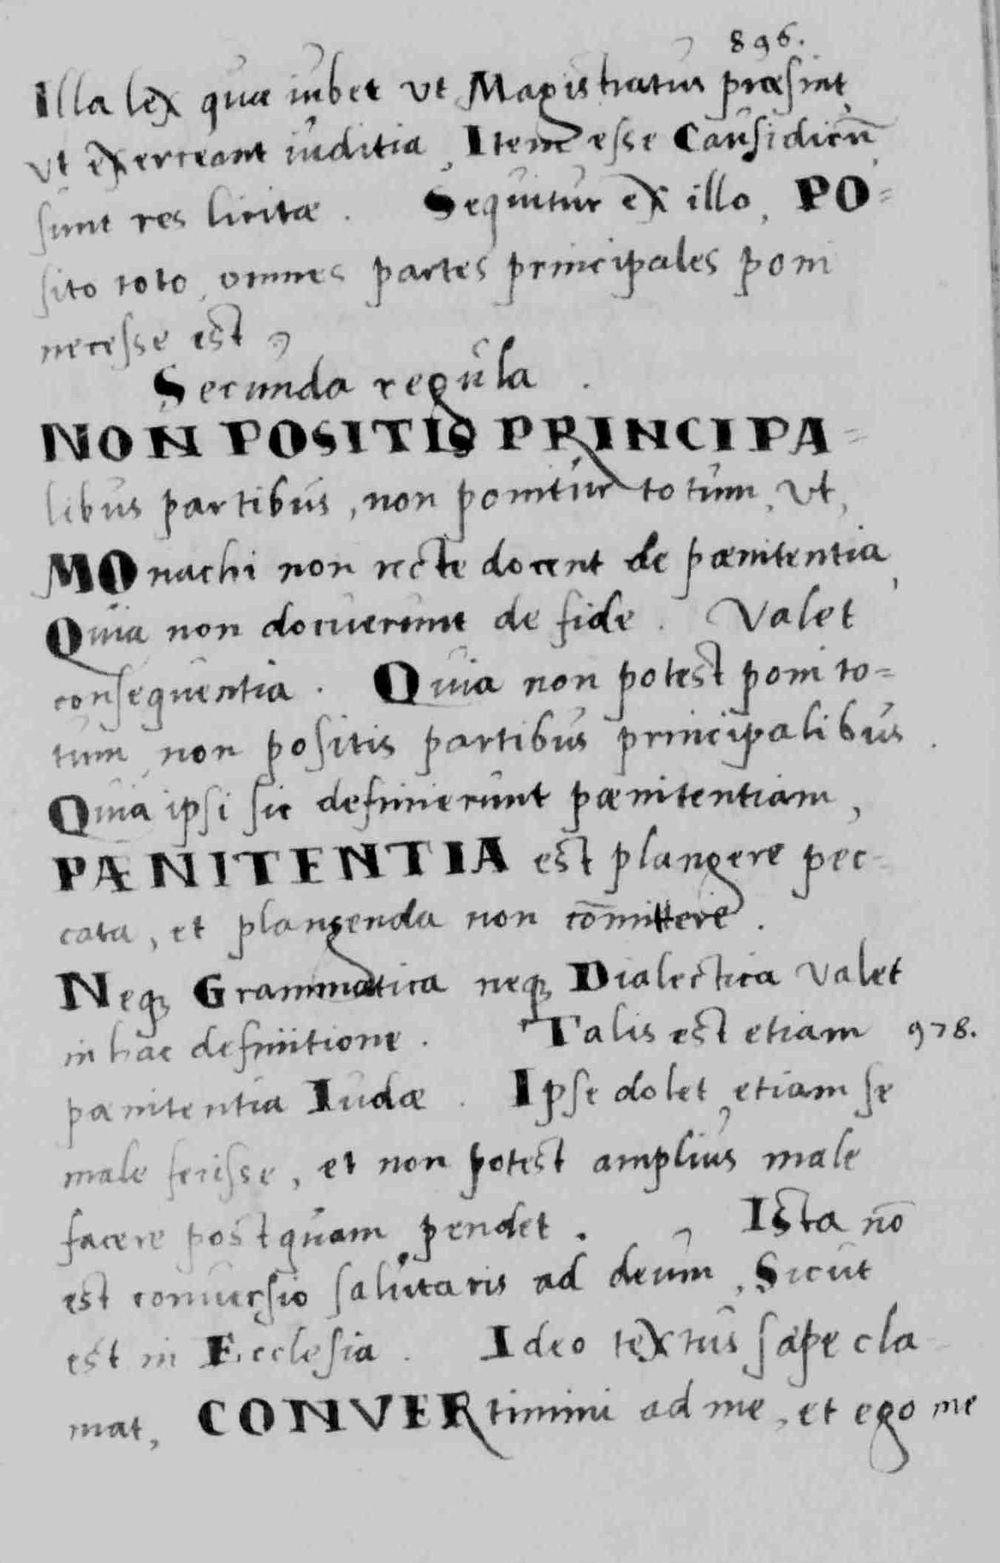 896.
Illa lex quæ iubet vt Magistratus præsint,
vt exerceant iuditia, Item esse Causidicū,
sunt res licitæ. Sequitur ex illo, PO=
sito toto, omnes partes principales poni
necesse est,
Secunda regula.
NON POSITIS PRINCIPA=
libus partibus, non ponitur totum, vt,
MOnachi non recte docent de pænitentia,
Quia non docuerunt de fide. Valet
consequentia. Quia non potest poni to=
tum, non positis partibus principalibus.
Quia ipsi sic definierunt pænitentiam,
PÆNITENTIA est plangere pec-
cata, et plangenda non cōmittere.
Neqꝫ Grammatica neqꝫ Dialectica valet
in hac definitione. Talis est etiam 978.
pænitentia Iudæ. Ipse dolet, etiam se
male fecisse, et non potest amplius male
facere postquam pendet. Ista nō
est conuersio salutaris ad deum, Sicut
est in Ecclesia. Ideo textus sæpe cla-
mat, CONVERtimini ad me, et ego me